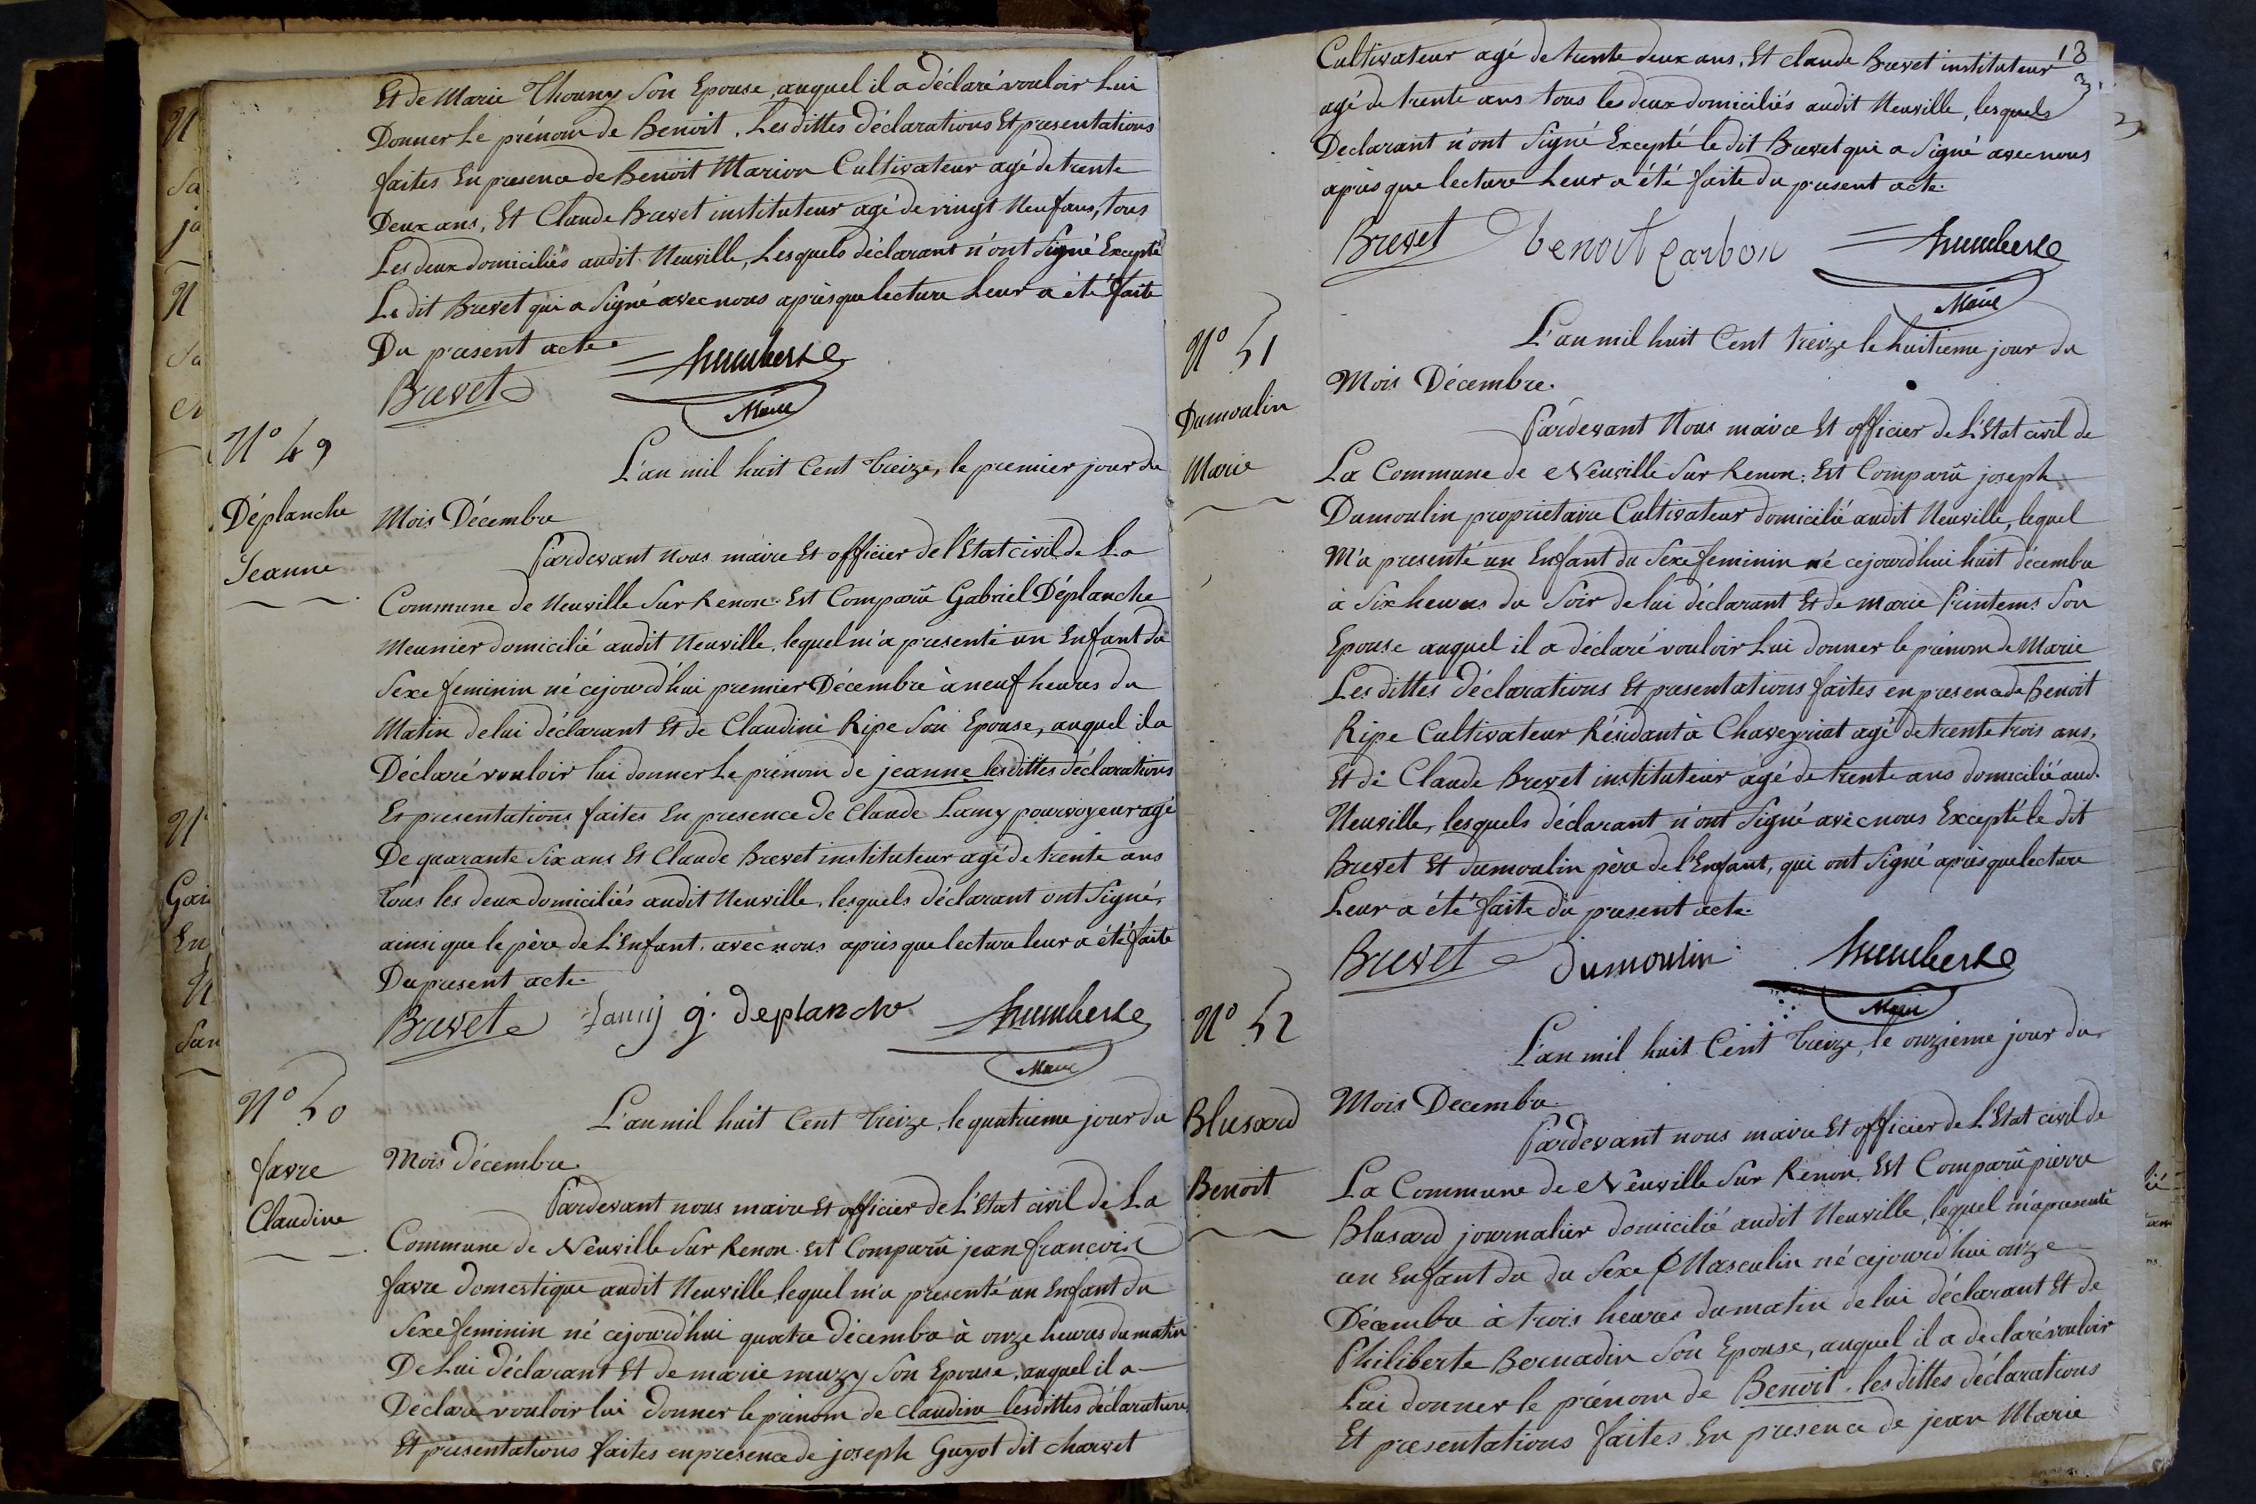 Et de Marie Thouny Son Epouse, auquel il a déclaré vouloir Lui
Donner Le prénom de Benoit. Les dittes déclarations Et presentations
faites En presence de Benoit Marion Cultivateur agé de trente
Deux ans, Et Claude Brevet instituteur agé de vingt Neuf ans, tous
Les deux domiciliés audit Neuville, Lesquels déclarant n'ont Signé Excepté
Le dit Brevet qui a Signé avec nous après que lecture Leur a été faite
Du present acte.
Brevet Humberte
Maire
N° 49
Déplanche
Jeanne
L'an mil huit Cent treize, le premier jour du
Mois Décembre
Pardevant nous maire Et officier de l'Etat civil de La
Commune de Neuville Sur Renon. Est Comparû Gabriel Déplanche
Meunier domicilié audit Neuville, lequel m'a presenté un Enfant du
Sexe feminin né cejourd'hui premier Décembre à neuf heures du
Matin de lui déclarant Et de Claudine Ripe Son Epouse, auquel il a
Déclaré vouloir lui donner Le prénom de jeanne les dittes déclarations
Et presentations faites En presence de Claude Lamy pourvoyeur agé
De quarante Six ans Et Claude Brevet instituteur agé de trente ans
Tous les deux domiciliés audit Neuville, lesquels déclarant ont Signé,
ainsi que le père de L'Enfant, avec nous après que lecture leur a été faite
Du present acte.
Brevet Lamy g. deplanche Humberte
Maire
N° 50
favre
Claudine
L'an mil huit Cent treize, le quatrieme jour du
Mois décembre.
Pardevant nous maire Et officier de L'Etat civil de La
Commune de Neuville Sur Renon. Est Comparû jean françois
favre domestique audit Neuville, lequel m'a presenté un Enfant du
Sexe feminin né cejourd'hui quatre décembre à onze heures du matin
De Lui déclarant Et de marie muzy Son Epouse, auquel il a
Déclaré vouloir lui donner le prénom de claudine les dittes déclarations
Et presentations faites en presence de joseph Guyot dit charvet
13
Cultivateur agé de trente deux ans, Et claude Brevet instituteur
agé de trente ans tous les deux domiciliés audit Neuville, lesquels
Declarant n'ont Signé Excepté le dit Brevet qui a Signé avec nous
après que lecture Leur a été faite du present acte.
Brevet benoit Carbon Humberte
Maire
N° 51
Dumoulin
Marie
L'an mil huit Cent treize le huitieme jour du
Mois Décembre.
Pardevant Nous maire Et officier de L'Etat civil de
La Commune de Neuville Sur Renon. Est Comparû joseph
Dumoulin proprietaire Cultivateur domicilié audit Neuville, lequel
M'a presenté un Enfant du Sexe feminin né cejourd'hui huit décembre
à Six heures du Soir de lui déclarant Et de marie Printems Son
Epouse auquel il a déclaré vouloir Lui donner le prénom de Marie
Les dittes déclarations Et presentations faites en presence de Benoit
Ripe Cultivateur Résidant à Chaveyriat agé de trente trois ans,
Et de Claude Brevet instituteur agé de trente ans domicilié aud.
Neuville, lesquels déclarant n'ont Signé avec nous Excepté le dit
Brevet Et dumoulin père de l'Enfant, qui ont Signé après que lecture
Leur a été faite du present acte.
Brevet dumoulin Humberte
Maire
N° 52
Blusard
Benoit
L'an mil huit Cent treize, le onzieme jour du
Mois Decembre.
Pardevant nous maire Et officier de L'Etat civil de
La Commune de Neuville Sur Renon. Est Comparû pierre
Blusard journalier domicilié audit Neuville, lequel m'a presenté
un Enfant du du Sexe Masculin né cejourd'hui onze
Décembre à trois heures du matin de lui déclarant Et de
Philiberte Bernadin Son Epouse, auquel il a declaré vouloir
Lui donner le prénom de Benoit. les dittes déclarations
Et presentations faites En presence de jean Marie